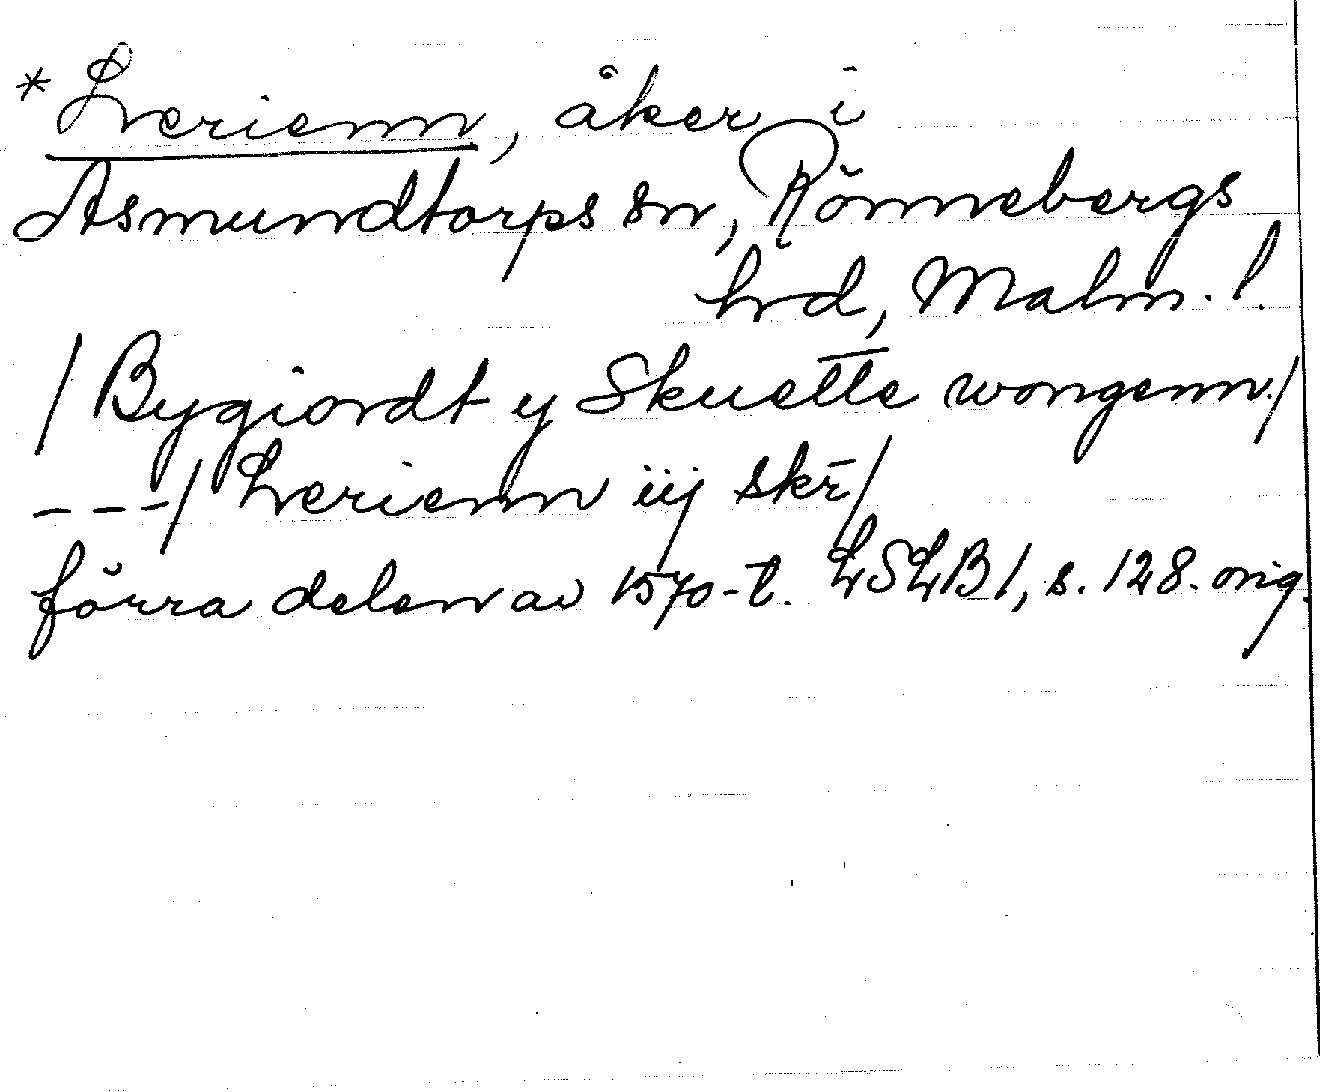 *Lerienn, åker i
Asmundtorps sn, Rönnebergs
hd, Malm. l.
/Bygiordt y Skuette wongenn./
---/ Lerienn iij skr̄/
förra delen av 1570-t. LSLB 1, s. 128. orig.